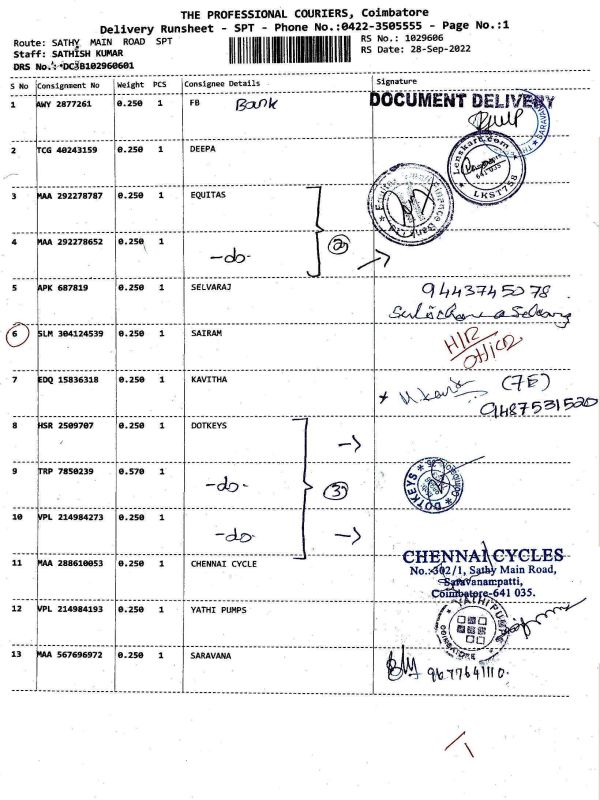 THE PROFESSIONAL COURIERS, Coimbatore
Delivery Runsheet - SPT - Phone No.:0422-3505555 - Page No.:1
Route: SATHY MAIN ROAD SPT
RS No.: 1029606
Staff: SATHISH KUMAR
RS Date: 28-Sep-2022
DRS No.: *DC3B102960601
S No Consignment No Weight PCS Consignee Details Signature
1 AWY 2877261 0.250 1 FB Bank DOCUMENT DELIVERY
2 TCG 40243159 0.250 1 DEEPA Lenskart.com 641 035 LKST758
3 MAA 292278787 0.250 1 EQUITAS
4 MAA 292278652 0.250 1 -do- 2
5 APK 687819 0.250 1 SELVARAJ 9443745078
6 SLM 304124539 0.250 1 SAIRAM
7 EDQ 15836318 0.250 1 KAVITHA (7E)
9487531520
8 HSR 2509707 0.250 1 DOTKEYS
9 TRP 7850239 0.570 1 -do- 3 DOTKEYS
10 VPL 214984273 0.250 1 -do-
11 MAA 288610053 0.250 1 CHENNAI CYCLE CHENNAI CYCLES
No.:302/1, Sathy Main Road,
Saravanampatti,
Coimbatore-641 035.
12 VPL 214984193 0.250 1 YATHI PUMPS YATHI PUMPS COIMBATORE
13 MAA 567696972 0.250 1 SARAVANA 9677641110.